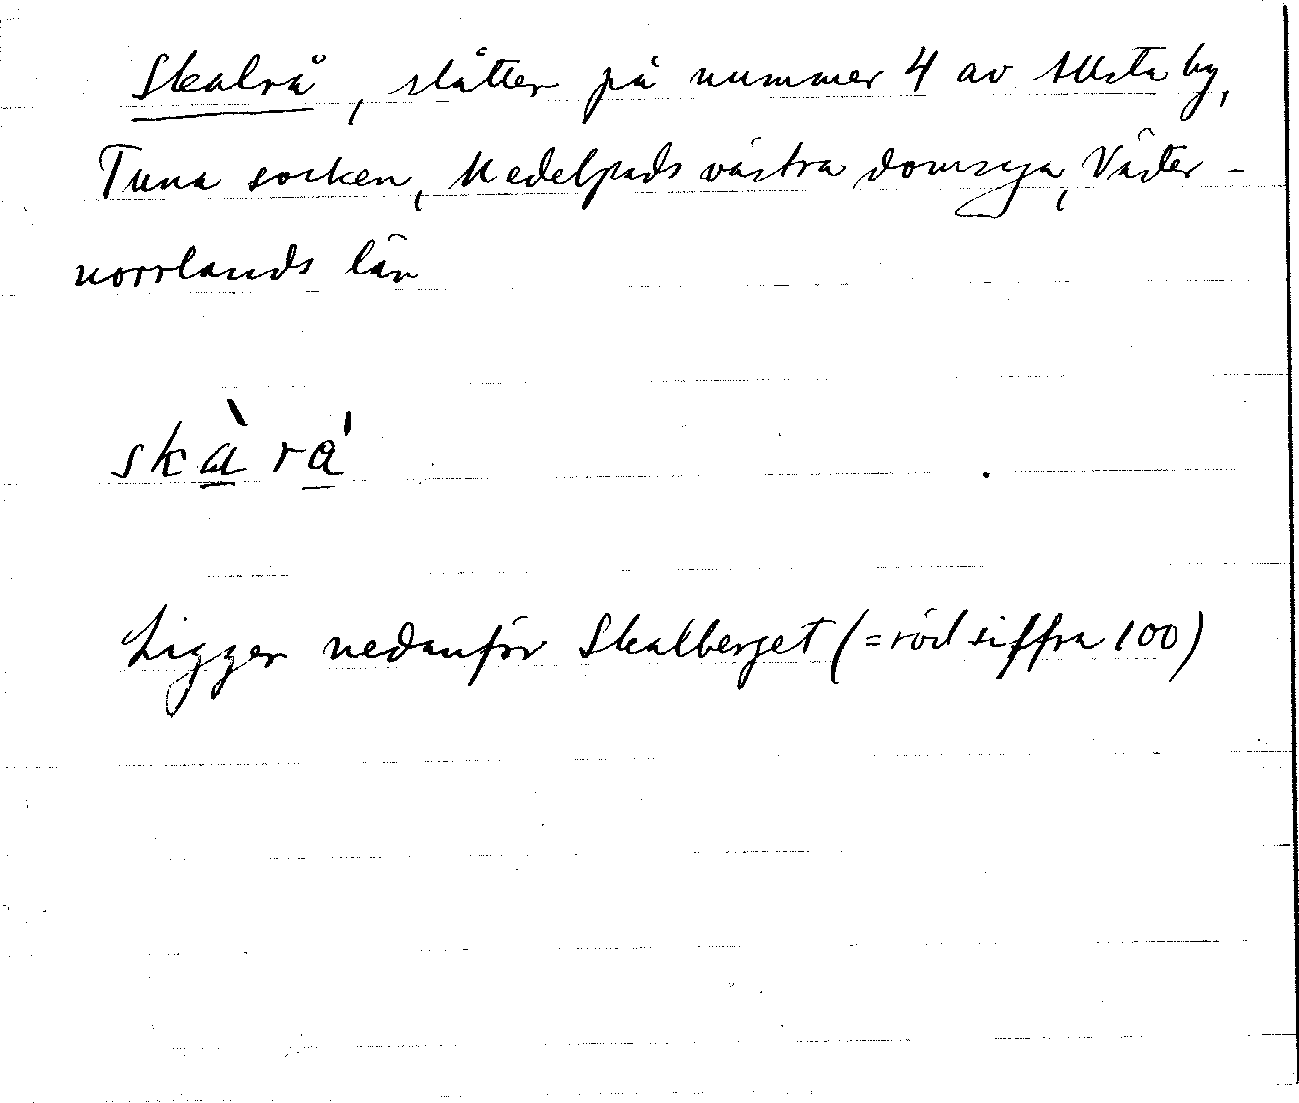 Skalrå, slåtter på nummer 4 av Allsta by,
Tuna socken, Medelpads västra domsaga, Väster-
norrlands län
skàrá
Ligger nedanför Skalberget (= röd siffra 100)